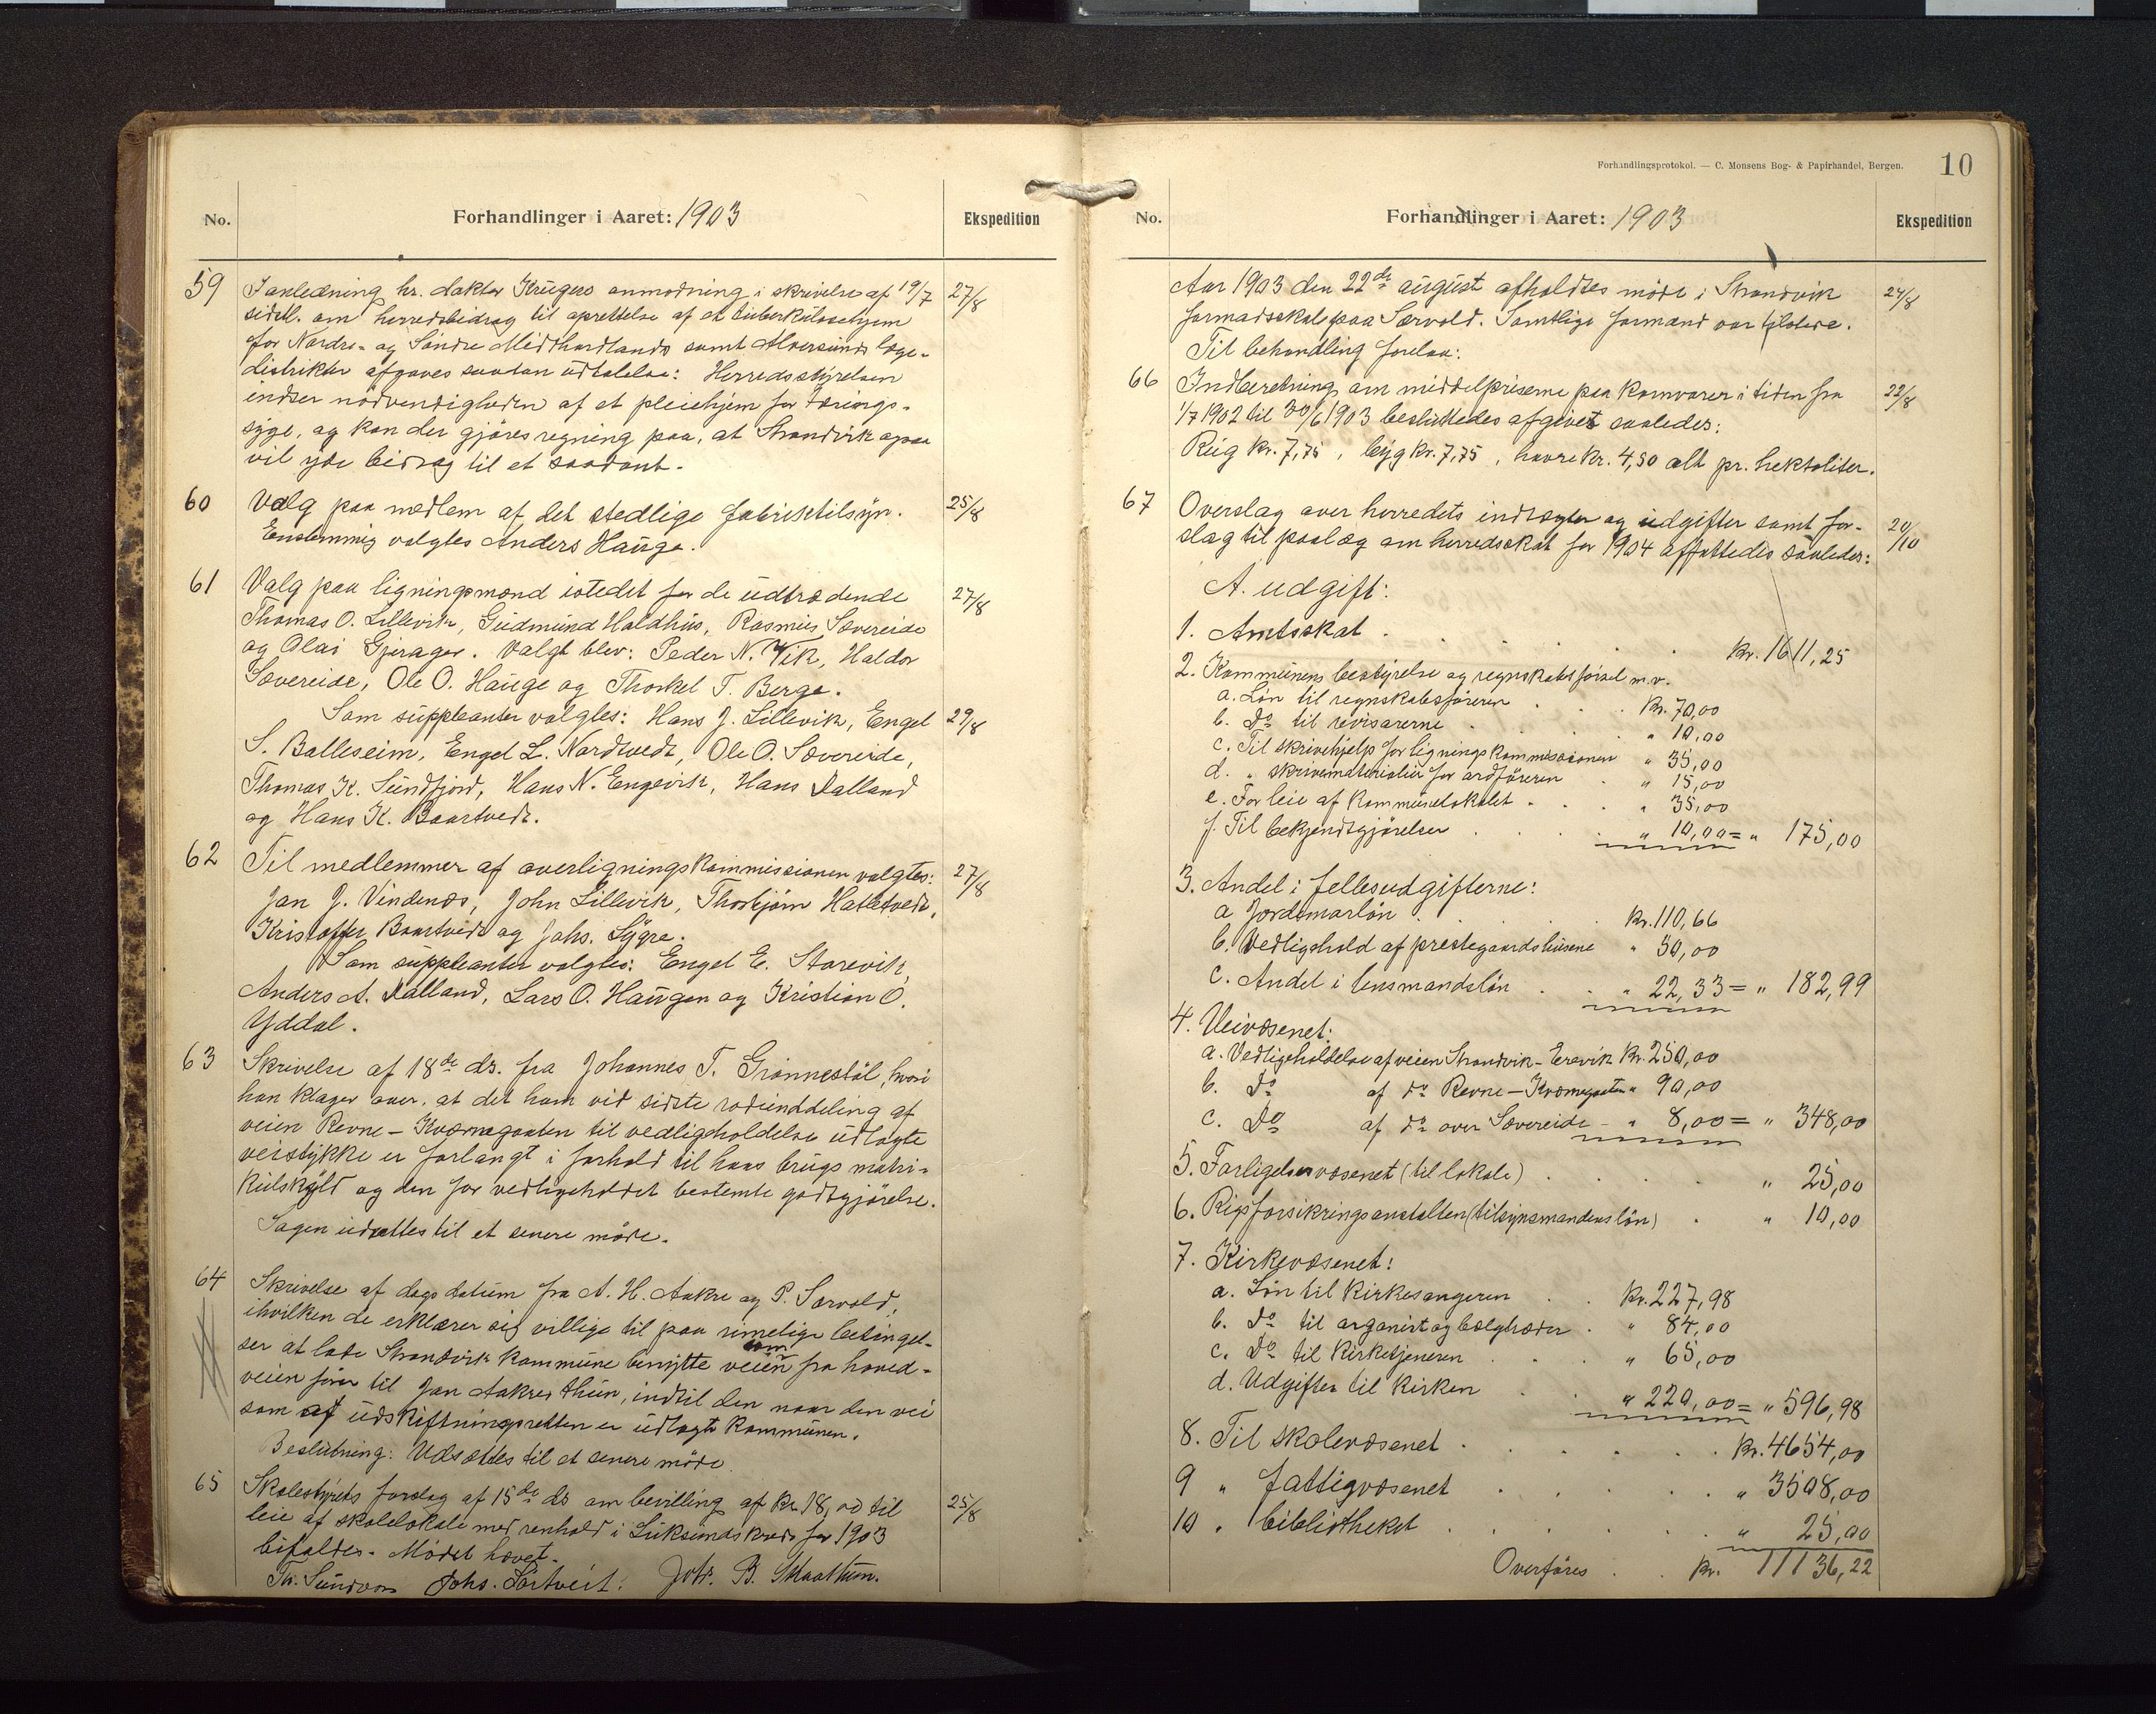 No.
Forhandlinger i Aaret: 1903
Ekspedition
59
I anledning hr. doktor Krügers anmodning i skrivelse af 19/7
27/8
sidstl. om herredsbidrag til oprettelse af et tuberkulosehjem
for Nordre- og Söndre Midthordlands samt Alversunds læge-
distrikter afgaves saadan udtalelse: Herredsstyrelsen
indser nödvendigheden af et pleiehjem for tærings-
syge, og kan der gjöres regning paa, at Strandvik ogsaa
vil yde bidrag til et saadant.
60
Valg paa medlem af det stedlige fabriktilsyn.
25/8
Enstemmig valgtes Anders Hauge.
61
Valg paa ligningsmænd istedet for de udtrædende
27/8
Thomas O. Lillevik, Gudmund Haldhus, Rasmus Sævereide
og Olai Gjerager. Valgt blev: Peder N. Vik, Haldor
Sævereide, Ole O. Hauge og Thorkel T. Berge.
Som suppleanter valgtes: Hans J. Lillevik, Engel
29/8
S. Balleseim, Engel L. Nordtvedt, Ole O. Sævereide,
Thomas K. Sundfjord, Hans N. Engevik, Hans Dalland
og Hans K. Baartvedt.
62
Til medlemmer af overligningskommissionen valgtes:
27/8
Jan J. Vindenæs, John Lillevik, Thorbjörn Hatletvedt,
Kristoffer Baartvedt og Johs. Lygre.
Som suppleanter valgtes: Engel E. Storevik,
Anders A. Dalland, Lars O. Haugen og Kristian O.
Yddal.
63
Skrivelse af 18de ds. fra Johannes T. Grönnestöl, hvori
han klager over, at det ham vid sidste rodeinddeling af
veien Revne - Kværnegaaten til vedligeholdelse udlagte
veistykke er forlangt i forhold til hans brugs matri-
kulskyld og den for vedligeholdet bestemte godtgjörelse.
Sagen udsættes til et senere möde.
64
Skrivelse af dags datum fra A. H. Aakre og P. Særvold,
ihvilken de erklærer sig villige til paa rimelige betingel-
ser at lade Strandvik kommune benytte veien som fra hoved-
veien förer til Jan Aakres thun, indtil den naar den vei
som af udskiftningsretten er udlagt kommunen.
Beslutning: Udsættes til et senere möde.
65
Skolestyrets forslag af 15de ds om bevilling af kr. 18,00 til
25/8
leie af skolelokale med renhold i Luksunds kreds for 1903
bifaldes. Mödet hævet.
Th. Sundvor Johs. Sörtveit. Joh. B. Skaathun.
Forhandlingsprotokol. — C. Monsens Bog- & Papirhandel, Bergen.
10
No.
Forhandlinger i Aaret: 1903
Ekspedition
Aar 1903 den 22de august afholdtes möde i Strandvik
24/8
formadsskab paa Særvold. Samtlige formænd var tilstede.
Til behandling forelaa:
66
Indberetning om middelpriserne paa kornvarer i tiden fra
22/8
1/7 1902 til 30/6 1903 besluttedes afgivet saaledes:
Rug kr. 7,75, byg kr. 7,75, havre kr. 4,50 alt pr. hektoliter.
67
Overslag over herredets indtægter og udgifter samt for-
20/10
slag til paalæg om herredsskat for 1904 affattedes saaledes:
A. udgift:
1. Amtsskat . . . . . kr. 1611,25
2. Kommunens bestyrelse og regnskabsförsel m.v.
a. Lön til regnskabsföreren . . . kr. 70,00
b. Do til revisorerne . . . " 10,00
c. Til skrivehjelp for ligningskommissionen " 35,00
d. " skrivematerialier for ordföreren . " 15,00
e. For leie af kommunelokalet . . . " 35,00
f. Til bekjendtgjörelser . . . . " 10,00 = " 175,00
3. Andel i fellesudgifterne:
a Jordmorlön . . . . kr. 110,66
b. Vedligehold af prestegaardshusene " 50,00
c. Andel i lensmandslön . . " 22,33 = " 182,99
4. Veivæsenet:
a. Vedligeholdelse af veien Strandvik - Eerevik kr. 250,00
b. Do af do Revne - Kværnegaaten " 90,00
c. Do af do over Sævereide - " 8,00 = " 348,00
5. Forligelsesvæsenet (til lokale) . . . . " 25,00
6. Rigsforsikringsanstalten (tilsynsmandens lön) . " 10,00
7. Kirkevæsenet:
a. Lön til kirkesangeren . . kr. 227,98
b. Do til organist og bælgtræder . " 84,00
c. Do til kirketjeneren . . . " 65,00
d. Udgifter til kirken . . " 220,00 = " 596,98
8. Til skolevæsenet . . . . . . kr. 4654,00
9 " fattigvæsenet . . . . . " 3508,00
10 " bibliotheket . . . . . . " 25,00
Overföres . . kr. 11136,22